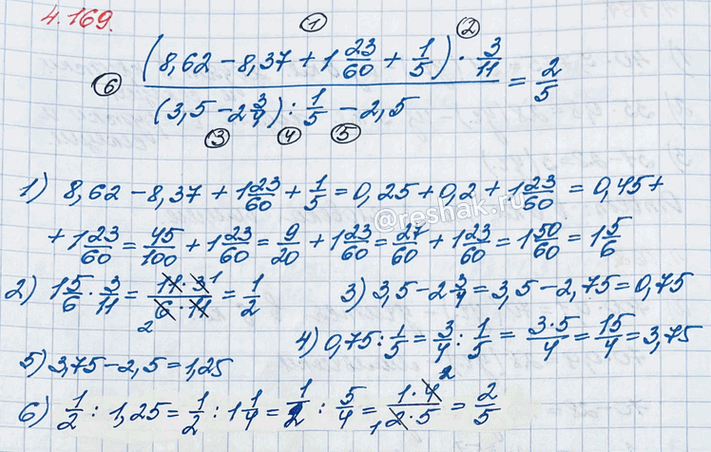 4.169.
① ②
(8,62 − 8,37 + 1 23/60 + 1/5) · 3/11
⑥ ———————— = 2/5
(3,5 − 2 3/4) : 1/5 − 2,5
③ ④ ⑤
1) 8,62 − 8,37 + 1 23/60 + 1/5 = 0,25 + 0,2 + 1 23/60 = 0,45 +
@reshak.ru
+ 1 23/60 = 45/100 + 1 23/60 = 9/20 + 1 23/60 = 27/60 + 1 23/60 = 1 50/60 = 1 5/6
2) 1 5/6 · 3/11 = 11 · 3 1/2 6 · 11 = 1/2 3) 3,5 − 2 3/4 = 3,5 − 2,75 = 0,75
4) 0,75 : 1/5 = 3/4 : 1/5 = 3·5/4 = 15/4 = 3,75
5) 3,75 − 2,5 = 1,25
6) 1/2 : 1,25 = 1/2 : 1 1/4 = 1/2 : 5/4 = 1 · 4 2/1 2 · 5 = 2/5